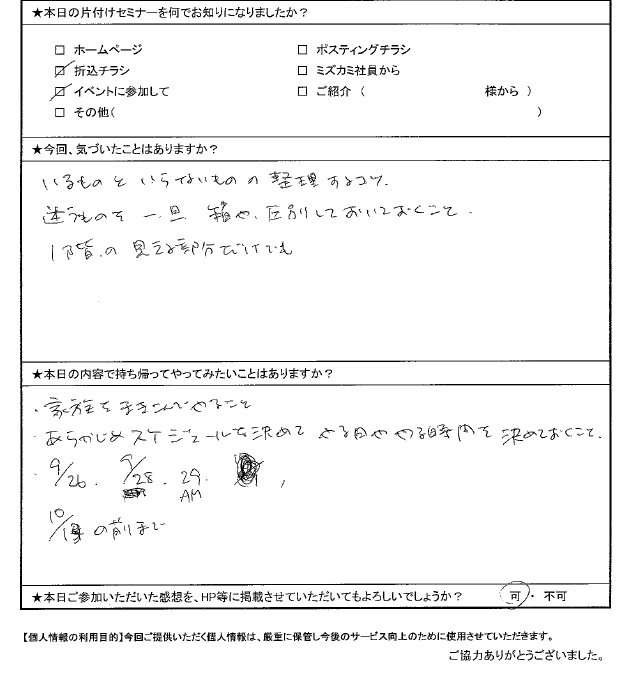 ★本日の片付けセミナーを何でお知りになりましたか？
□ ホームページ □ ポスティングチラシ
☑ 折込チラシ □ ミズカミ社員から
☑ イベントに参加して □ ご紹介（ 様から ）
□ その他（ ）
★今回、気づいたことはありますか？
いるものといらないものの整理するコツ.
迷うものを一旦箱や、区別しておいておくこと.
1階の見える部分だけでも
★本日の内容で持ち帰ってやってみたいことはありますか？
・家族をまきこんでやること
・あらかじめスケジュールを決めて やる日ややる時間を決めておくこと.
・9/26. 9/28. 29. AM
10/ の前まで
★本日ご参加いただいた感想を、HP等に掲載させていただいてもよろしいでしょうか？ 可・不可
【個人情報の利用目的】今回ご提供いただく個人情報は、厳重に保管し今後のサービス向上のために使用させていただきます。
ご協力ありがとうございました。